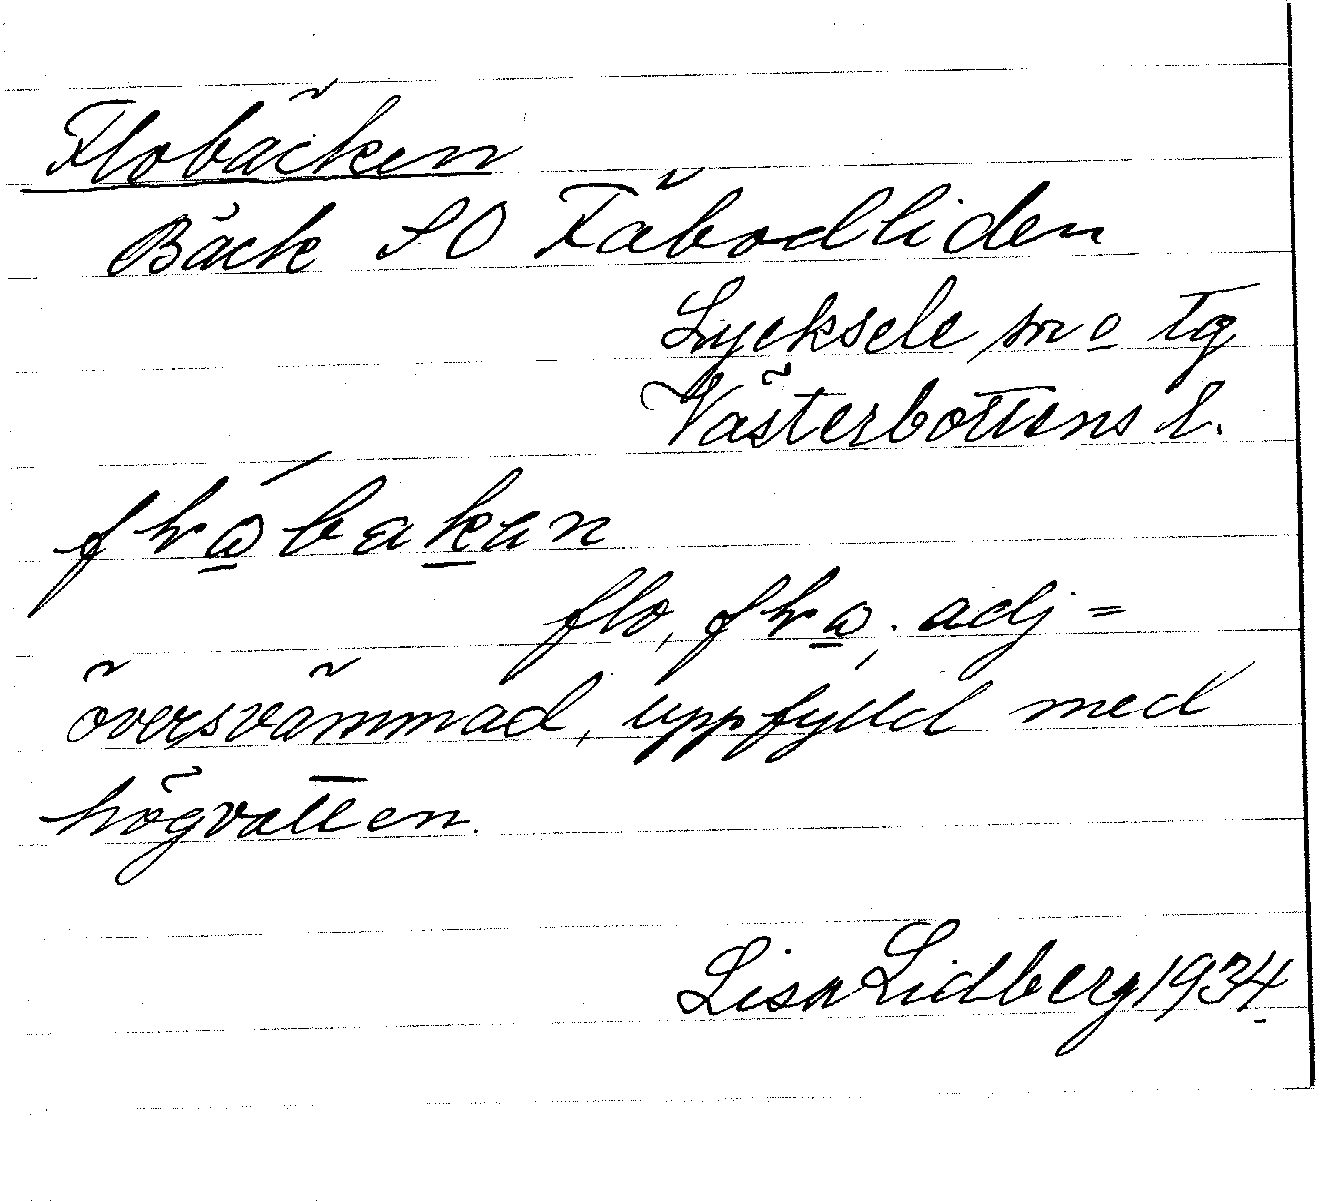 Flobäcken
Bäck SO Fäbodliden
Lycksele sn o tg
Västerbottens l.
flo, adj =
översvämmad, uppfylld med
högvatten.
Lisa Lidberg 1934